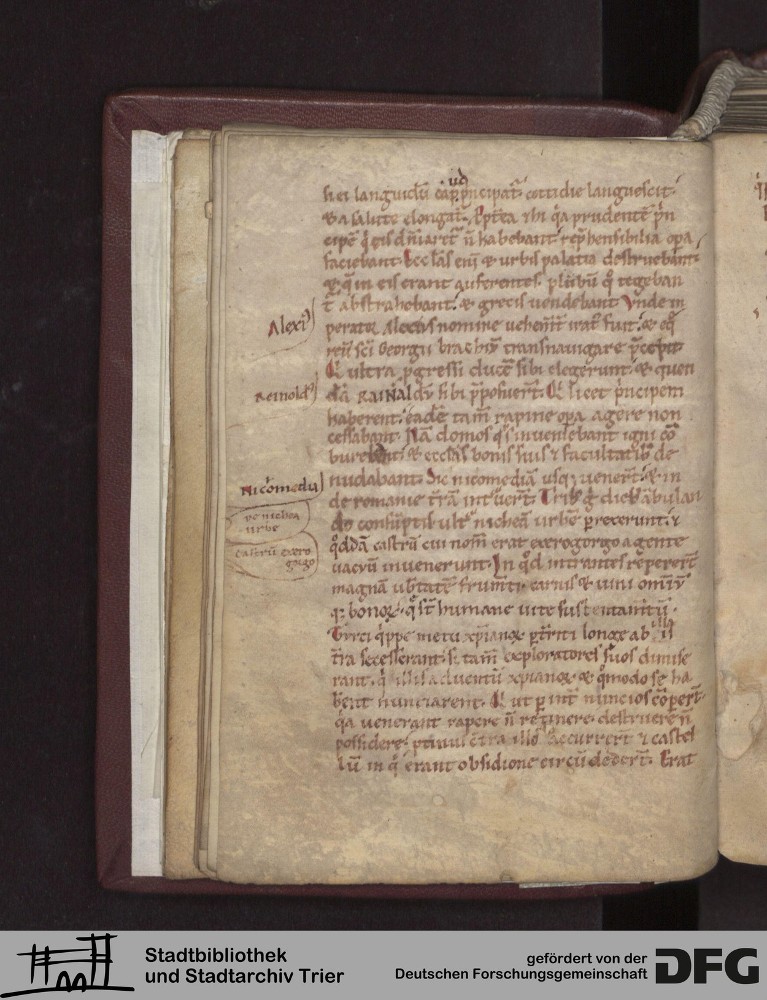 si ei languidū cap̄ pͥncipat᷑ cottidie languescit᷑
& a salute elongat᷑. Ppt̄ea ihi q̇a prudentē pͥn
cipē q̇ eis dn̄iaret᷑ n̄ habebant rep̄hensibilia opa
faciebant. Eccłas eni᷑ & urbis palatia destruebant.
& q̇ in eis erant auferentes. plūbū q̇ tegeban
t᷑ abstrahebant. & grecis uendebant. Vnde in
perator Alexius nomine uehem̄t᷑ irat᷑ fuit. &
scī Georgii brachiū transnauigare p̄cepit.
Qi ultra p̱gressi ducē sibi elegerunt. & quen
dā RAINALdū sibi p̄posuer̄t. Qi licet pͥncipem
haberent. eadē tam̄ rapine opa agere non
cessabant. Nā domos q̇s inueniebant igni cō
burebant. & eccłas bonis suis & facultatib; de
nudabant. Sic nicomediā usq; uener̄t. & in
de romanie t̄rā int᷑uer̄t. Trib; g̊ dieb; ābulan
do consūptis ultͣ nicheā urbē p̱rexerunt. &
q̊ddā castrū cui nom̄ erat exerogorgo a gente
uacuū inuenerunt. In q̊d intrantes reperer̄t
magnā ub̄tatē frum̄ti. carnis & uini omniū
q; bonoꝝ. q̇ st̄ humane uite sustentam̄tū.
Turci q̇ppe metu xp̄ianoꝝ pt̄r̄iti longe ab illis
t̄ra secesserant. s; tam̄ exploratores suos dimise
rant. q̇ illis aduentū xp̄ianoꝝ & q̊modo se ha
ber̄nt nunciarent. Qi ut p̱ int᷑nuncios cōper̄t.
q̇a uenerant rapere n̄ retinere. destruere n̄
possidere. ptinus c̄tra illos occurrer̄t & castel
lū in q̊ erant obsidione circūdeder̄t. Erat
Alexi᷒
Reinold᷒
Nicomedia
De nichea
urbe
castrū exero
gorgo
Stadtbibliothek
und Stadtarchiv Trier
gefördert von der
Deutschen Forschungsgemeinschaft
DFG